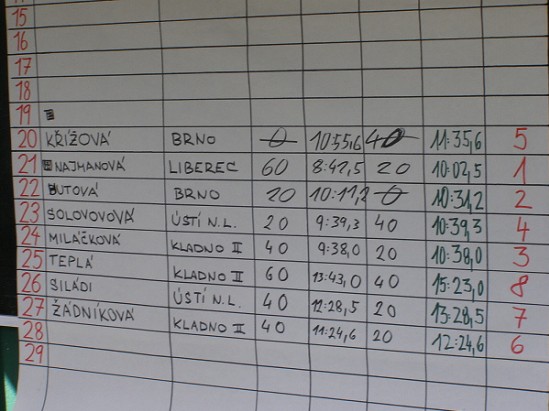 15
16
17
18
19
20 KŘÍŽOVÁ BRNO 0 10:55,6 40 11:35,6 5
21 NAJMANOVÁ LIBEREC 60 8:42,5 20 10:02,5 1
22 BUTOVÁ BRNO 20 10:11,2 0 10:31,2 2
23 SOLOVOVOVÁ ÚSTÍ N.L. 20 9:39,3 40 10:39,3 4
24 MILÁČKOVÁ KLADNO II 40 9:38,0 20 10:38,0 3
25 TEPLÁ KLADNO II 60 13:43,0 40 15:23,0 8
26 SILÁDI ÚSTÍ N.L. 40 12:28,5 20 13:28,5 7
27 ŽÁDNÍKOVÁ KLADNO II 40 11:24,6 20 12:24,6 6
28
29